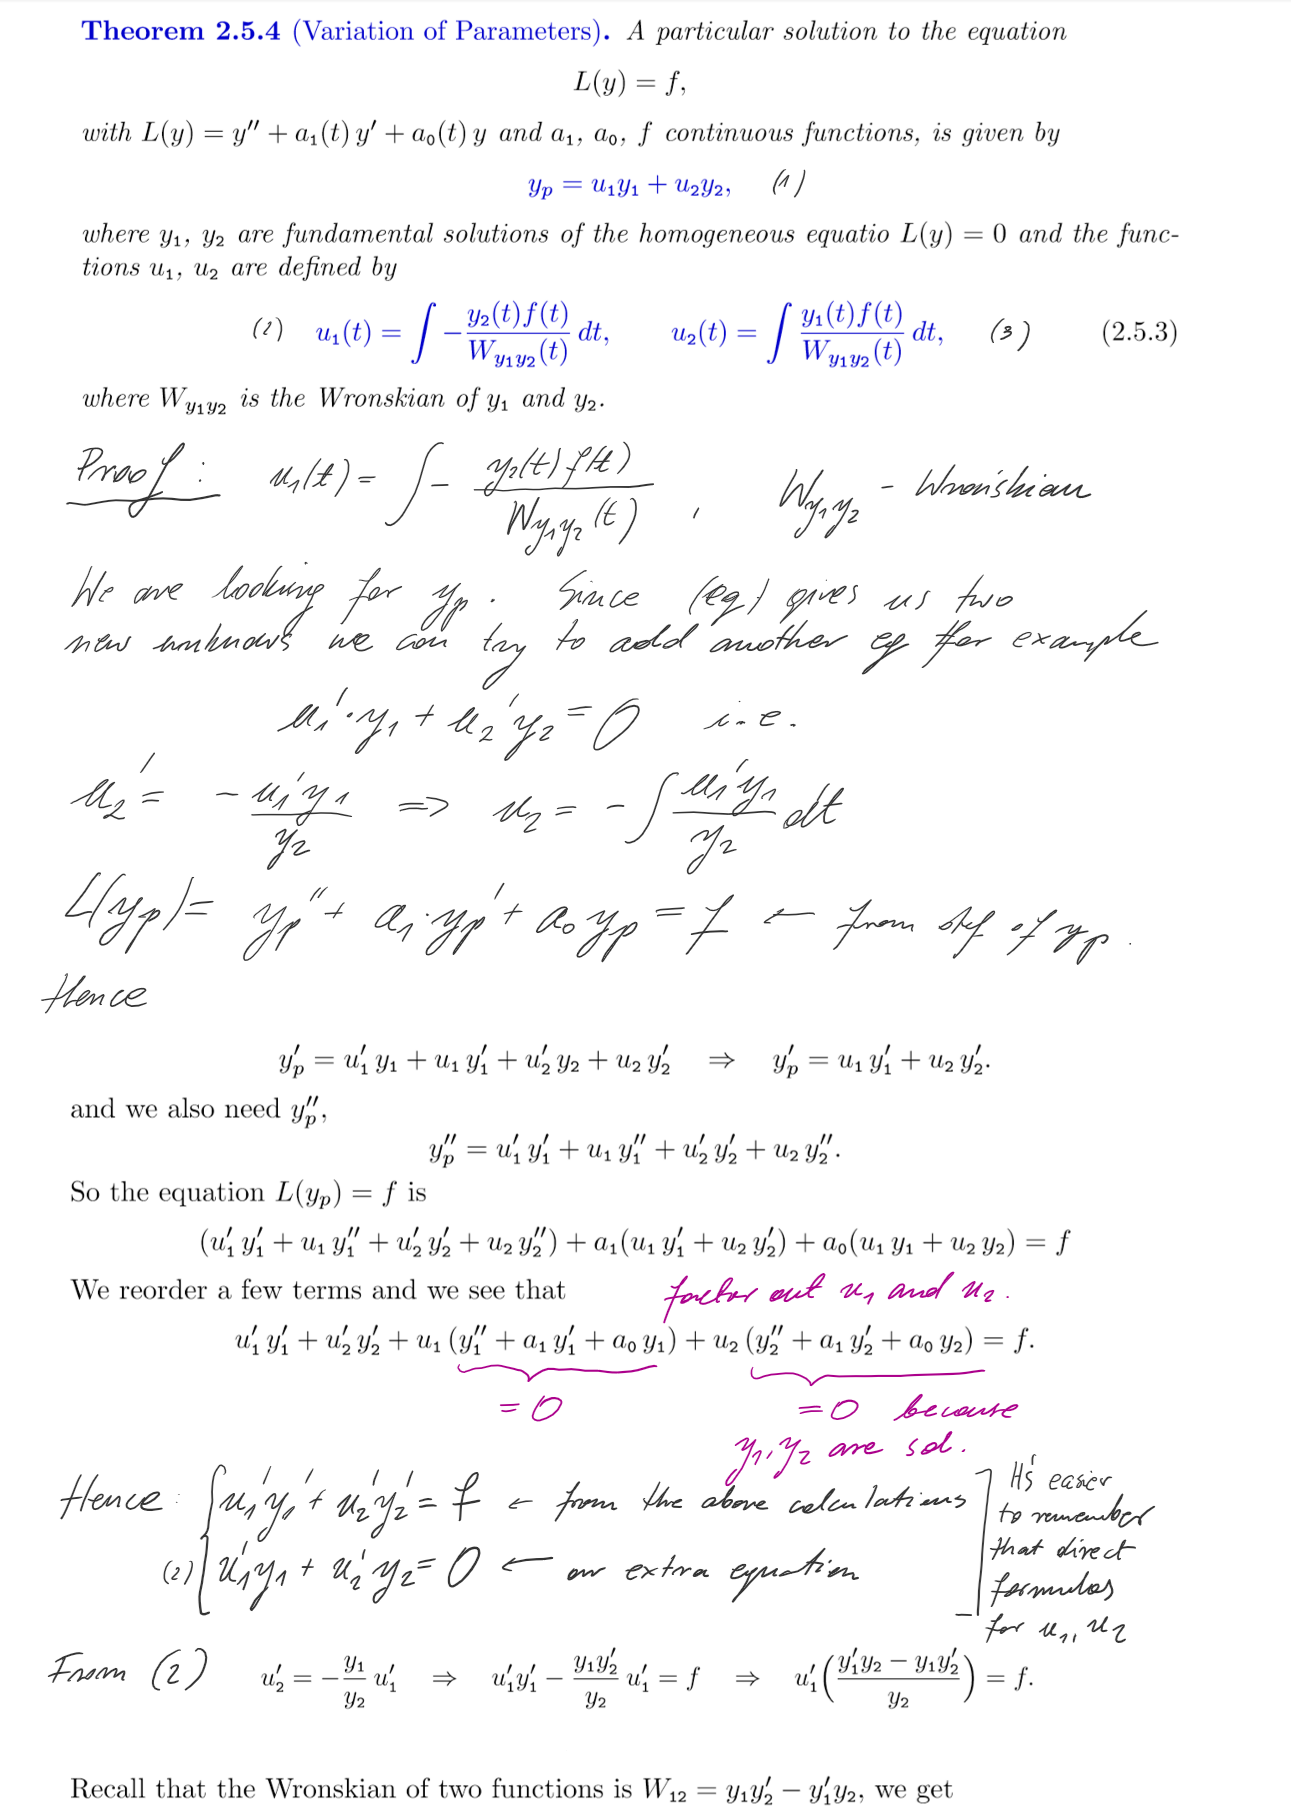 Theorem 2.5.4 (Variation of Parameters). A particular solution to the equation
L(y) = f,
with L(y) = y″ + a₁(t) y′ + a₀(t) y and a₁, a₀, f continuous functions, is given by
yₚ = u₁y₁ + u₂y₂, (1)
where y₁, y₂ are fundamental solutions of the homogeneous equatio L(y) = 0 and the func-
tions u₁, u₂ are defined by
(2) u₁(t) = ∫ − y₂(t)f(t)/W_{y₁y₂}(t) dt, u₂(t) = ∫ y₁(t)f(t)/W_{y₁y₂}(t) dt, (3) (2.5.3)
where W_{y₁y₂} is the Wronskian of y₁ and y₂.
Proof: u₁(t) = ∫ − y₂(t) f(t)/W_{y₁y₂}(t) , W_{y₁y₂} - Wronskian
We are looking for yₚ. Since (eq) gives us two
new unknows we can try to add another eq for example
u₁′·y₁ + u₂′y₂ = 0 i.e.
u₂′ = − u₁′y₁/y₂ => u₂ = − ∫ u₁′y₁/y₂ dt
L(yₚ) = yₚ″ + a₁·yₚ′ + a₀yₚ = f ← from def of yₚ.
Hence
yₚ′ = u₁′ y₁ + u₁ y₁′ + u₂′ y₂ + u₂ y₂′ ⇒ yₚ′ = u₁ y₁′ + u₂ y₂′.
and we also need yₚ″,
yₚ″ = u₁′ y₁′ + u₁ y₁″ + u₂′ y₂′ + u₂ y₂″.
So the equation L(yₚ) = f is
(u₁′ y₁′ + u₁ y₁″ + u₂′ y₂′ + u₂ y₂″) + a₁(u₁ y₁′ + u₂ y₂′) + a₀(u₁ y₁ + u₂ y₂) = f
We reorder a few terms and we see that factor out u₁ and u₂.
u₁′ y₁′ + u₂′ y₂′ + u₁ (y₁″ + a₁ y₁′ + a₀ y₁) + u₂ (y₂″ + a₁ y₂′ + a₀ y₂) = f.
= 0 = 0 because
y₁, y₂ are sol.
Hence: { u₁′y₁′ + u₂′y₂′ = f ← from the above calculations
(2) u₁′y₁ + u₂′y₂ = 0 ← our extra equation
It's easier
to remember
that direct
formulas
for u₁, u₂
From (2) u₂′ = − y₁/y₂ u₁′ ⇒ u₁′y₁′ − y₁y₂′/y₂ u₁′ = f ⇒ u₁′( (y₁′y₂ − y₁y₂′)/y₂ ) = f.
Recall that the Wronskian of two functions is W₁₂ = y₁y₂′ − y₁′y₂, we get